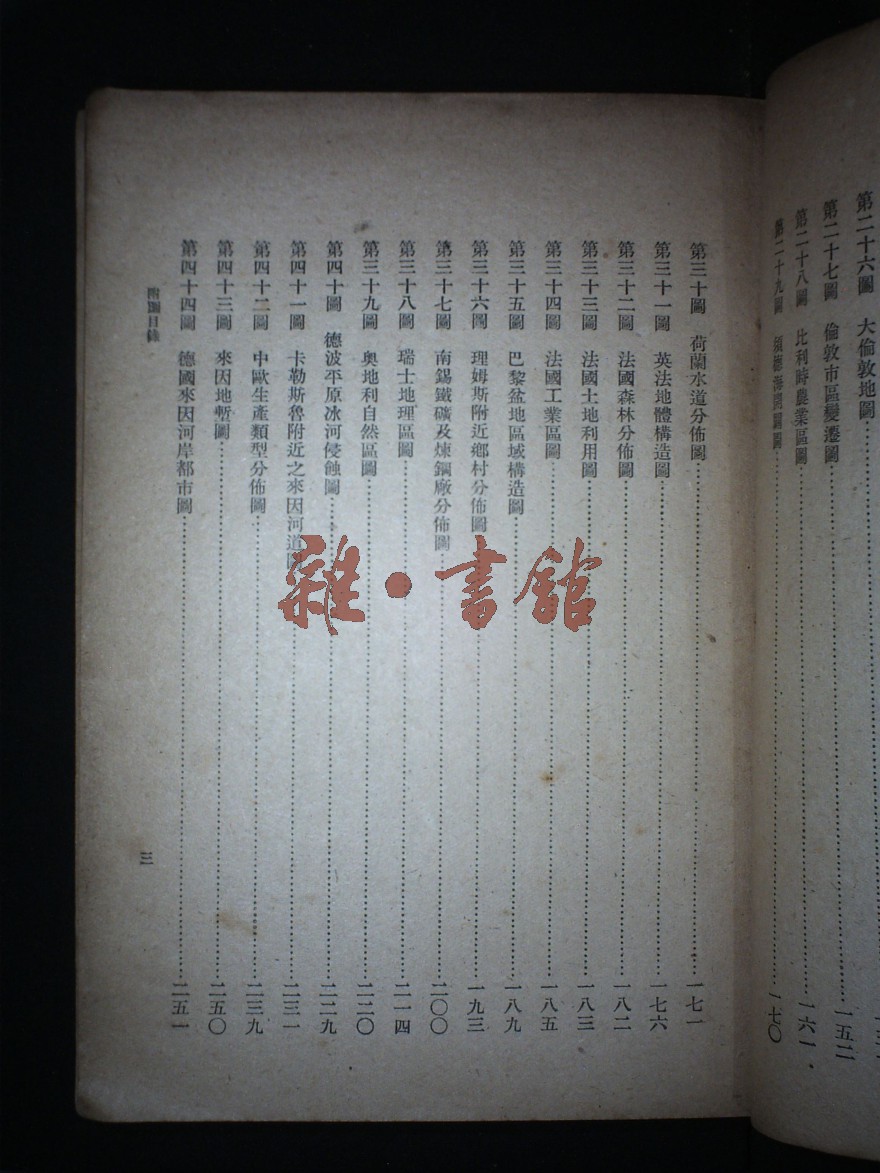 第二十六圖　大倫敦地圖
第二十七圖　倫敦市區變遷圖………一五二
第二十八圖　比利時農業區圖………一六一
第二十九圖　須德海開闢圖………一七〇
第三十圖　荷蘭水道分佈圖………一七一
第三十一圖　英法地體構造圖………一七六
第三十二圖　法國森林分佈圖………一八二
第三十三圖　法國土地利用圖………一八三
第三十四圖　法國工業區圖………一八五
第三十五圖　巴黎盆地區域構造圖………一八九
第三十六圖　理姆斯附近鄉村分佈圖………一九三
第三十七圖　南錫鐵礦及煉鋼廠分佈圖………二〇〇
第三十八圖　瑞士地理區圖………二一四
第三十九圖　奧地利自然區圖………二二〇
第四十圖　德波平原冰河侵蝕圖………二二九
第四十一圖　卡勒斯魯附近之來因河道圖………二三一
第四十二圖　中歐生產類型分佈圖………二三九
第四十三圖　來因地塹圖………二五〇
第四十四圖　德國來因河岸都市圖………二五一
附圖目錄
三
雜·書館